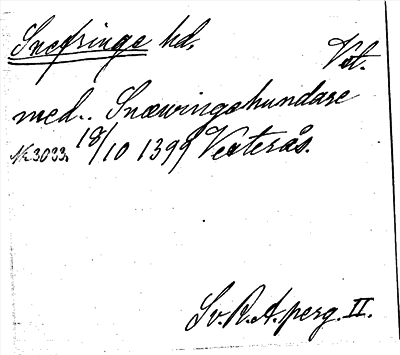 Snefringe hd.
Vst.
med. Snæwingahundare
N. 3033. 18/10 1399 Vesterås.
Sv. R. A. perg. II.